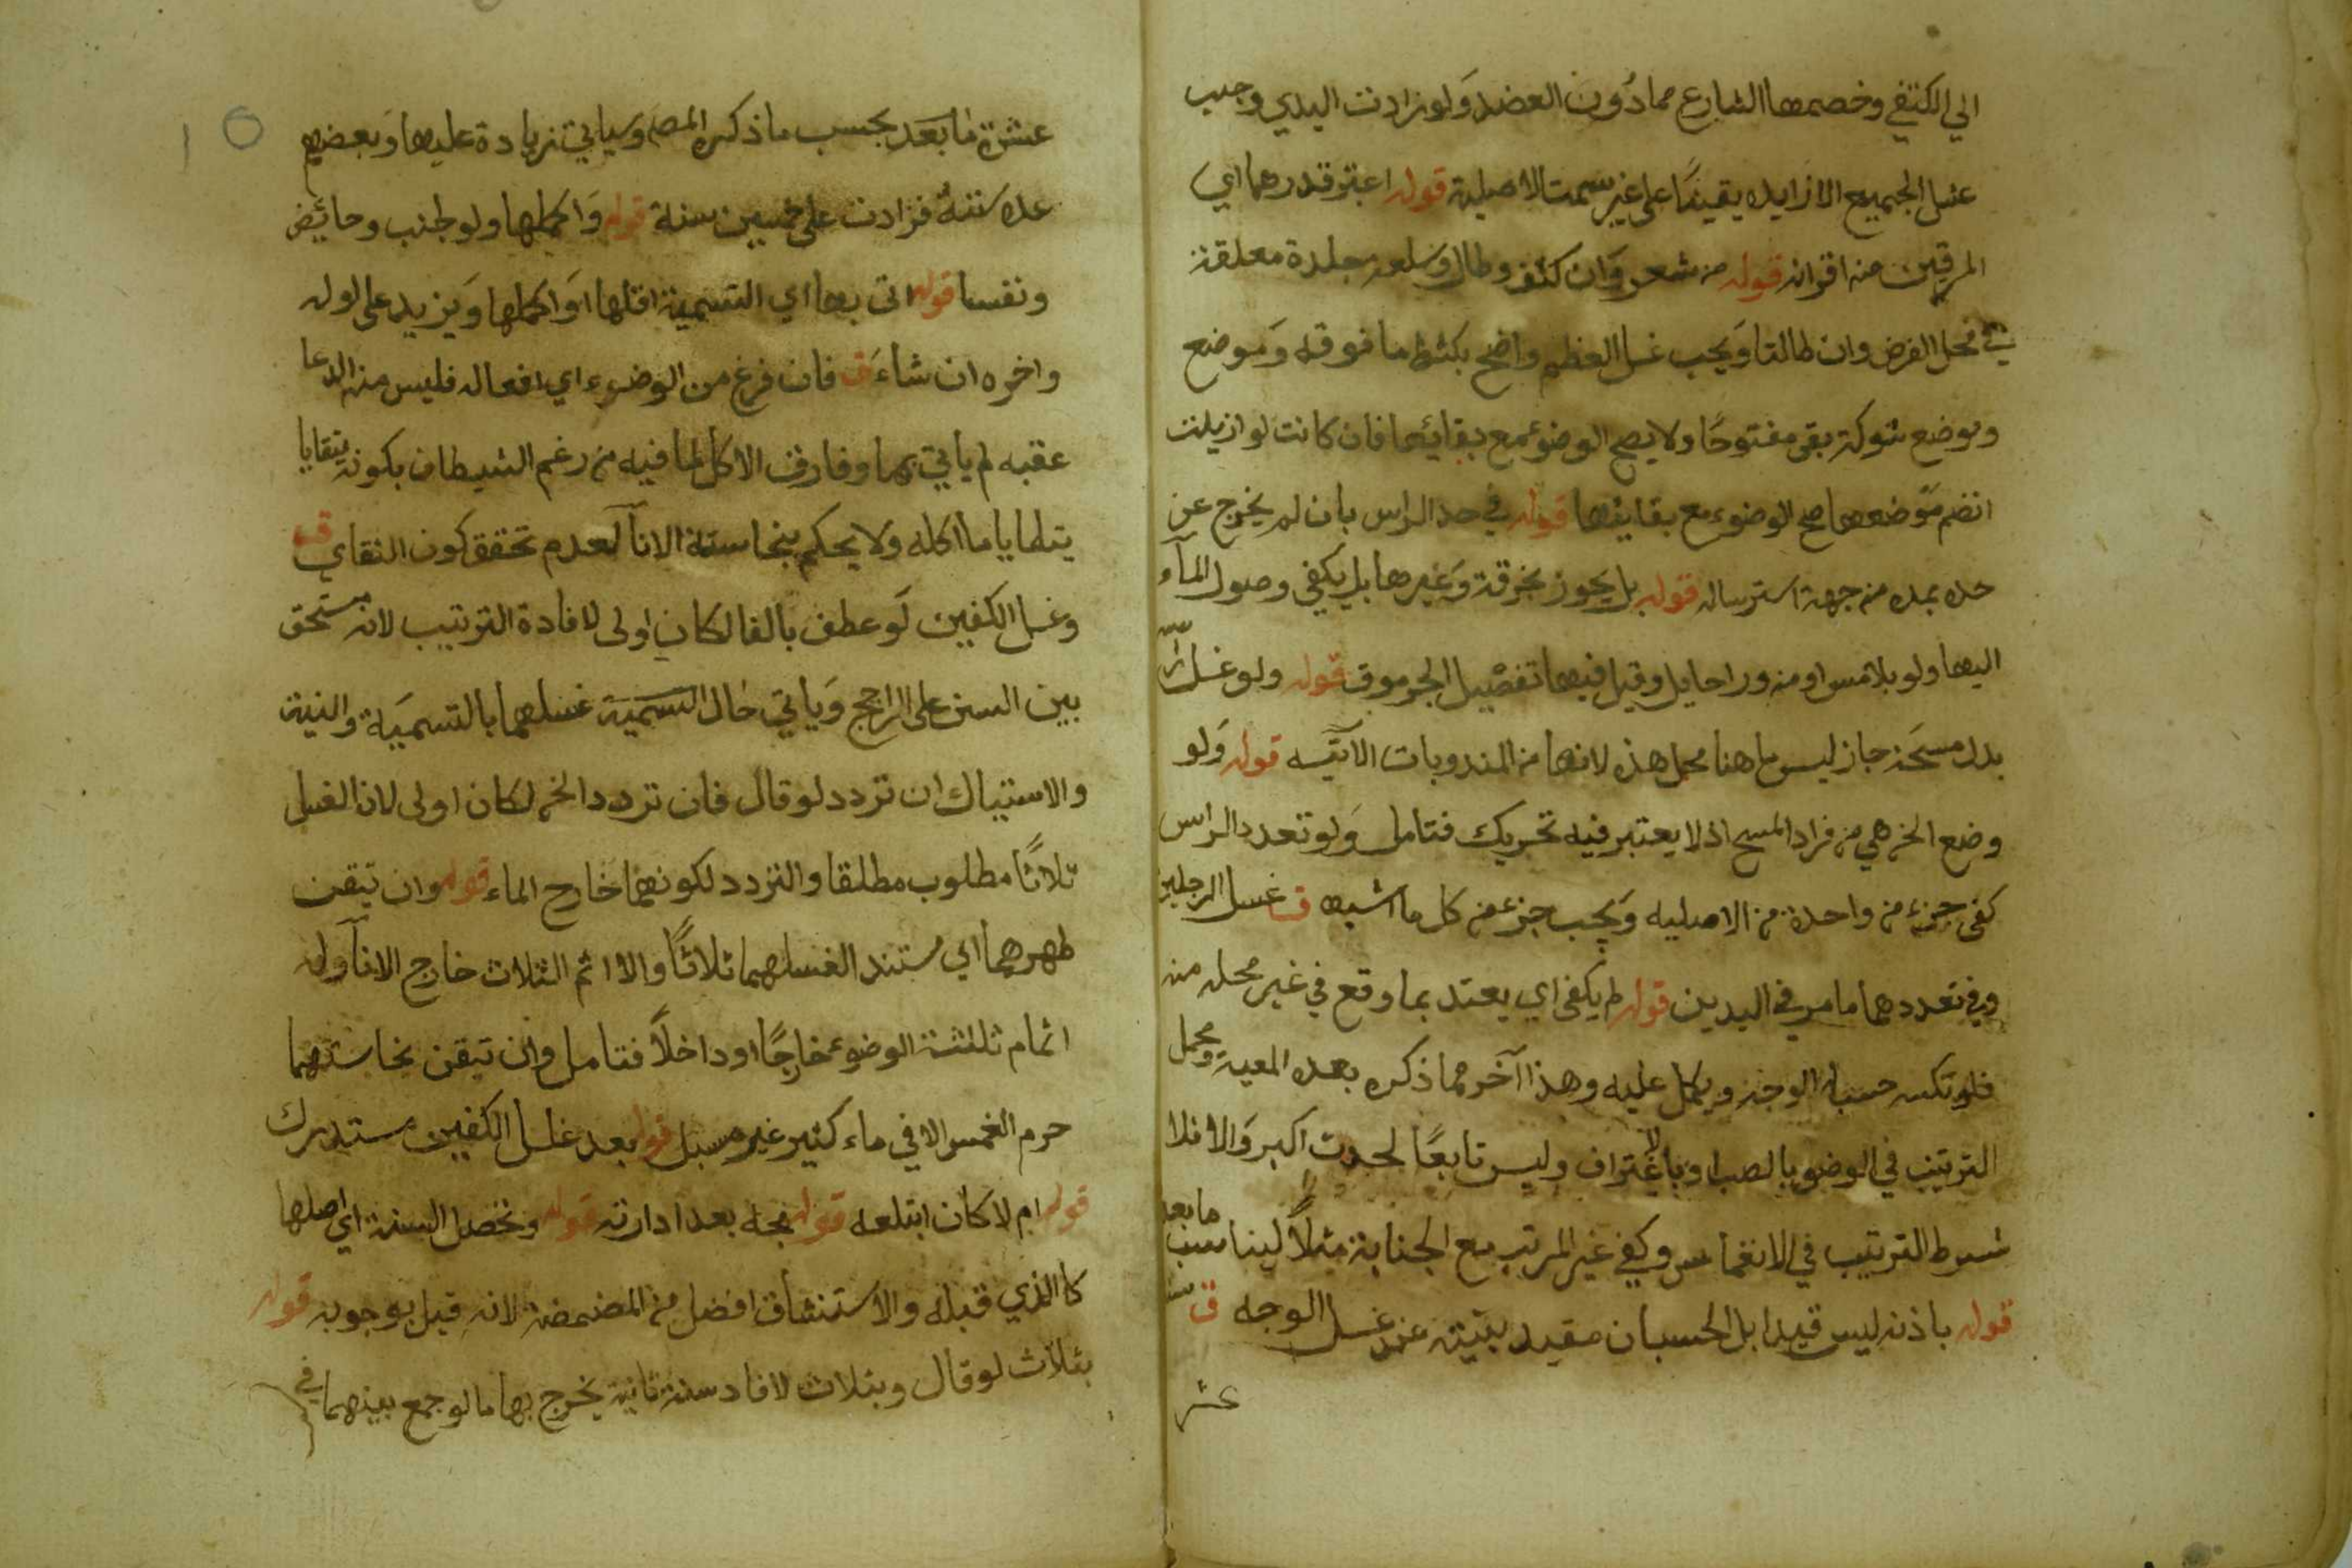 الي الكتفي وخصمها الشارع مما دُون العضد وَلو زادت اليدي وجب
غسل الجميع الا زايده يقينًا على غير سمت الاصلية قوله اعتبر قدرهما اي
المرقين من اقرانه قوله من شعر وَان كثف وطال وسلعه جلدة معلقة
في محل الفرض وان طالتا وَيجب غسل العظم واضح بكشط ما فوقه وَموضع
وموضع شوكة بقى مفتوحًا ولا يصح الوضوء مع بقائها فان كانت لو ازيلت
انضم مَوضعها صح الوضوء مع بقايها قوله في حد الراس بان لم يخرج عن
حده بمده من جهة استرساله قوله بل يجوز بخرقة وَغيرها بل يكفي وصول المآء
اليها ولو بلا مس او من ورا حايل وقيل فيها تفصيل الجرموق قوله ولو غسل راسه
بدل مسحَه جاز ليس ما هنا محل هذه لانها من المندوبات الآتيه قوله وَلو
وضع الخ هي من فراد المسح اذ لا يعتبر فيه تحريك فتامل وَلو تعدد الراس
كفى جزء من واحدة من الاصليه وَيجب جزء من كل ما اشبه ق غسل الرجلين
وفي تعددهما ما مر في اليدين قوله لم يكفي اي يعتد بما وقع في غير محله منه
فلو نكسه حسب له الوجه ويكمل عليه وهذا آخر مما ذكره بعده المعية ومحل
الترتيب في الوضو بالصب او باغتراف وليس تابعًا لحدث اكبر وَالا فلا
شرط الترتيب في الانغماس وكفي غير المرتب مع الجنابة مثلاً ليناسب ما بعد
قوله باذنه ليس قيدا بل الحسبان مقيد بنيته عند غسل الوجه ق
عشر
عشرة مَا بَعَد بحسب ما ذكره المصه وَسياتي زيادة عليها وَبعضهم
عده سننهُ فزادت على خمسين سنة قوله وَاكملها ولو لجنب وحائض
ونفسا قوله اتى بها اي التسمية اقلها اوَ اكملها وَيزيد على اوله
واخره ان شاءَ ق فان فرغ من الوضوء اي افعاله فليس منه الدعا
عقبه لم ياتي بها وفارق الاكل لما فيه من رغم الشيطان بكونه يتقايا
يتطايا ما اكله ولا يحكم بنجاسته الانآ لعدم تحقق كون التقاي ق
وغسل الكفين لَو عطف بالفا لكان اولى لافادة الترتيب لانه مستحق
بين السنن على الراجح وَياتي حال التسمية غسلهما بالتسمَية والنية
والاستياك ان تردد لو قال فان تردد الخ لكان اولى لان الغسل
ثلاثًا مطلوب مطلقا والتردد لكونهما خارج الماء قوله وان تيقن
طهرهما اي مستند الغسلهما ثلاثًا والا اتم الثلاث خارج الانآ وله
اتمام ثلثة الوضوء خارجًا او داخلاً فتامل وان تيقن نجاستهما
حرم الغمس الا في ماء كثير غير مسبل قوله بعد غسل الكفين مستدرك
قوله ام لا كان ابتلعه قوله مجه بعد ادارته قوله وتحصل السنة اي اصلها
كالذي قبله والاستنشاق افضل من المضمضة لانه قيل بوجوبه قوله
بثلاث لو قال وبثلاث لافاد سنة ثانية يخرج بها ما لو جمع بينهما في